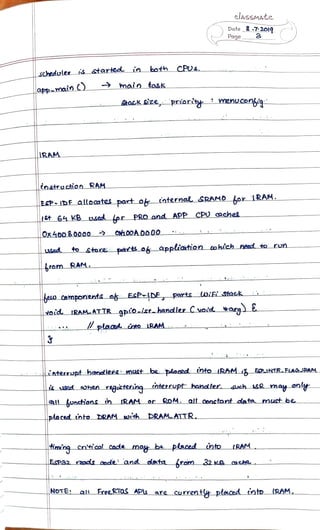 classmate
Date 8-7-2019
Page 3
scheduler is started in both CPUs.
app-main () → main task
stack size, priority : menuconfig
IRAM
Instruction RAM
ESP-IDF allocates part of internal SRAM0 for IRAM.
1st 64 KB used for PRO and APP CPU caches
0x40080000 → 0x400A0000
used to store parts of application which need to run
from RAM.
few components of ESP-IDF, parts WiFi stack
void IRAM_ATTR gpio-isr-handler (void *arg) {
... // placed into IRAM
}
interrupt handlers must be placed into IRAM if ESP_INTR_FLAG_IRAM
is used when registering interrupt handler. such ISR may only
call functions in IRAM or ROM. all constant data must be
placed into DRAM with DRAM_ATTR.
timing critical code may be placed into IRAM.
ESP32 reads code and data from 32 KB cache.
NOTE: all FreeRTOS APIs are currently placed into IRAM.